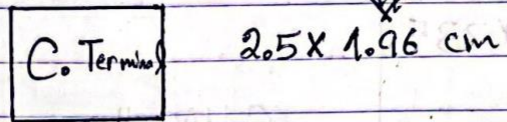 C. Terminal 2.5 x 1.96 cm